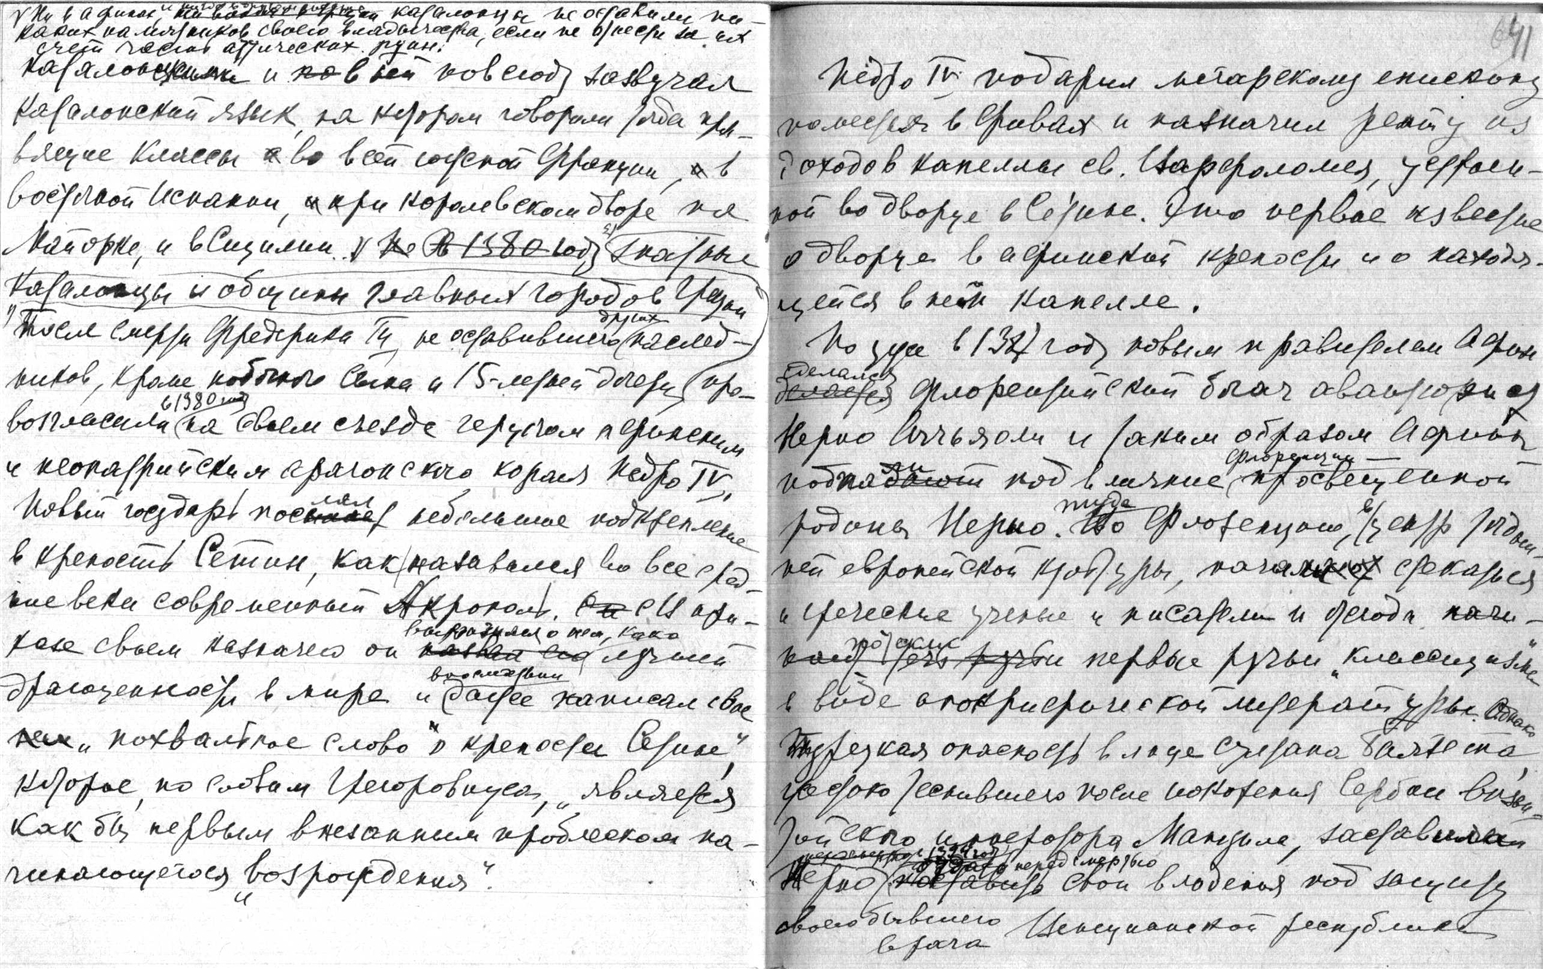 Ни в Афинах, каталонцы не оставили ни-
каких памятников своего владычества, если не отнести за их
счет часть аттических руин.
и повсюду зазвучал
каталонский язык, на котором говорили тогда пра-
вящие классы во всей южной Франции, в
восточной Испании, при королевском дворе на
Майорке, и в Сицилии. 1380 году знатные
каталонцы и общины главных городов Греции
После смерти Фредерика III, не оставившего других наслед-
ников, кроме побочного сына и 15-летней дочери, про-
в 1380 году
возгласили на своем съезде герцогом афинским
и неопатрийским арагонского короля Педро IV.
Новый государь послал небольшое подкрепление
в крепость Сетин, как назывался во все сред-
ние века современный Акрополь. В при-
казе своем назначего он лучшей
драгоценности в мире и далее написал свое
„похвальное слово" о крепости Сетине",
которое, по словам Грегоровиуса, „является
как бы первым внезапным проблеском на-
чинающегося возрождения".
641
Педро IV подарил мегарскому епископу
поместья в Фивах и назначил ренту из
доходов капеллы св. Варфоломея, устроен-
ной во дворце в Сетине. Это первое известие
о дворце в афинской крепости и о находя-
щейся в ней капелле.
Но уже в 1387 году новым правителем Афин
сделался
делается флорентийский богач авантюрист
Нерио Аччьяоли и таким образом Афины
подпали под влияние просвещенной
Флоренции —
родины Нерио. туда Во Флоренцию, в центр тогдаш-
ней европейской культуры, начали стекаться
и греческие ученые и писатели и отсюда
потекли первые ручьи „классицизма"
в виде апокрифической литературы. Однако
Турецкая опасность в лице султана Баязета,
жестоко теснившего после покорения Сербии визан-
тийского императора Мануила, заставила
1394 год
Нерио отдать перед смертью свои владения под защиту
своего бывшего врага Венецианской республики